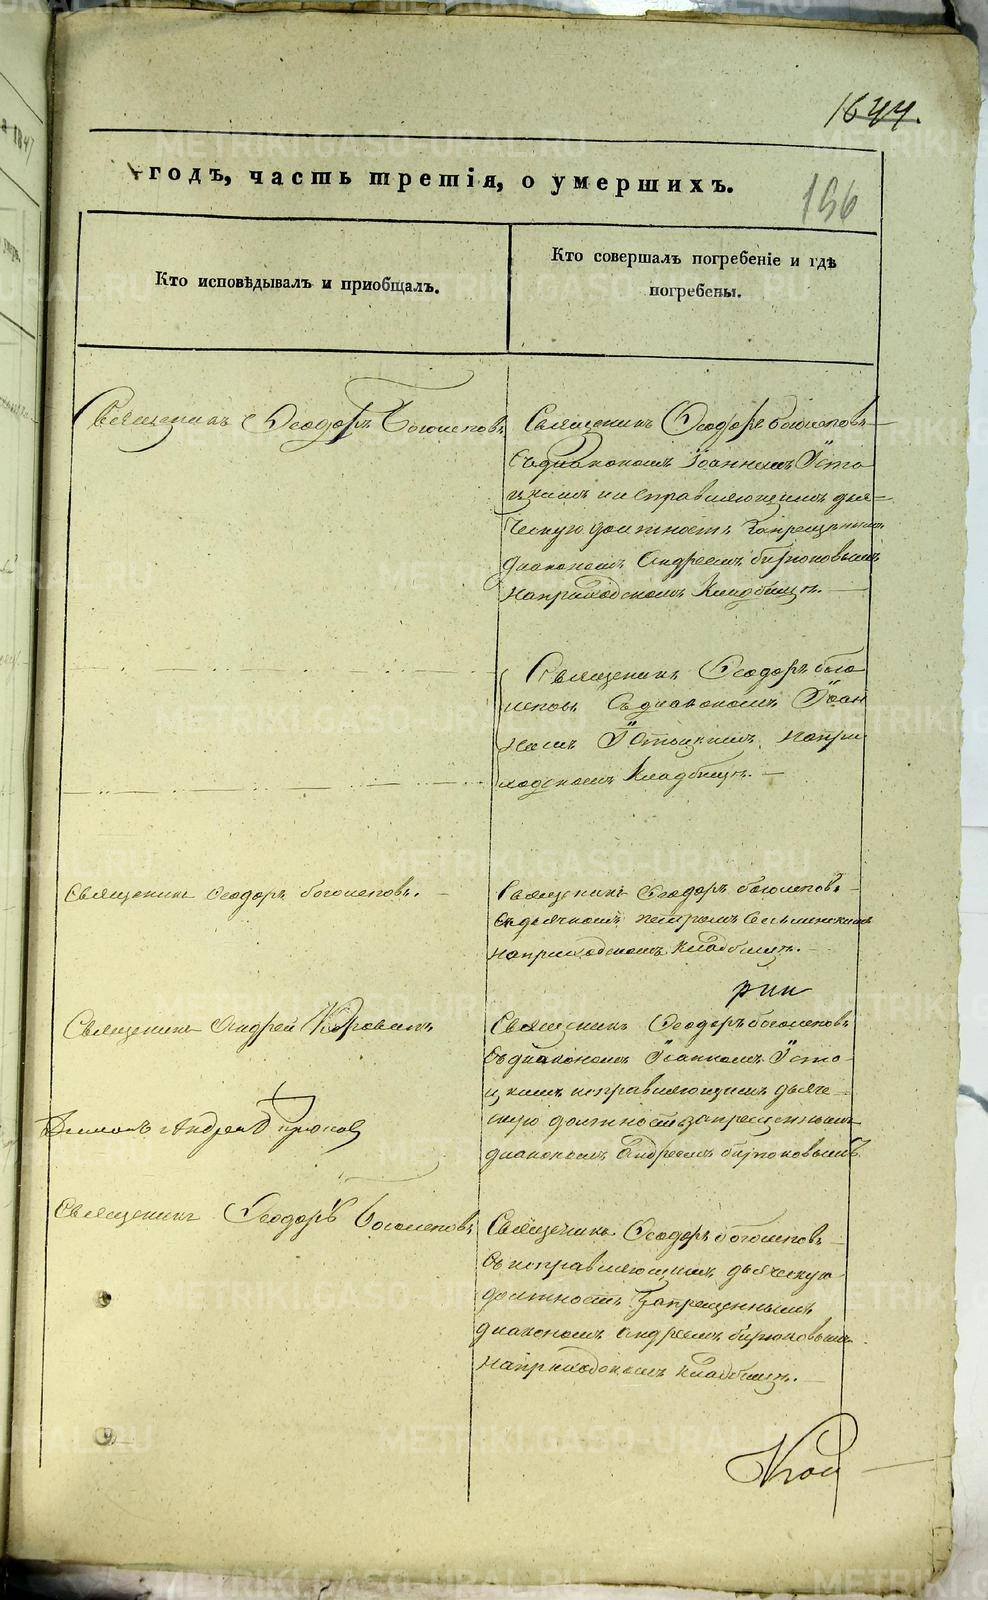 1644.
156
годъ, часть третія, о умершихъ.
Кто исповѣдывалъ и приобщалъ.
Кто совершалъ погребеніе и гдѣ
погребены.
Священникъ Ѳеодоръ Боголеповъ
Священникъ Ѳеодоръ боголеповъ
съ диакономъ Іоанномъ Исто
цкимъ и исправляющимъ дья-
ческую должность запрещеннымъ
диакономъ Андреемъ бирюковымъ
на приходскомъ кладбищѣ.
Священникъ Ѳеодоръ бого
леповъ съ диакономъ Іоан
номъ Истоцкимъ на при
ходскомъ кладбищѣ.
Священникъ Ѳеодоръ боголеповъ.
Священникъ Ѳеодоръ боголеповъ
съ дьячкомъ петромъ
на приходскомъ кладбищѣ.
Священникъ Андрей
Священникъ Ѳеодоръ боголеповъ
съ диакономъ Іоанномъ Исто
цкимъ исправляющимъ дьяче
скую должность запрещеннымъ
диакономъ Андреемъ бирюковымъ
Диаконъ Андрей Бирюков
Священникъ Ѳеодоръ Боголеповъ
Священникъ Ѳеодоръ боголеповъ
съ исправляющимъ дьяческую
должность запрещеннымъ
диакономъ андреемъ бирюковымъ
на приходскомъ кладбищѣ.
METRIKI.GASO-URAL.RU